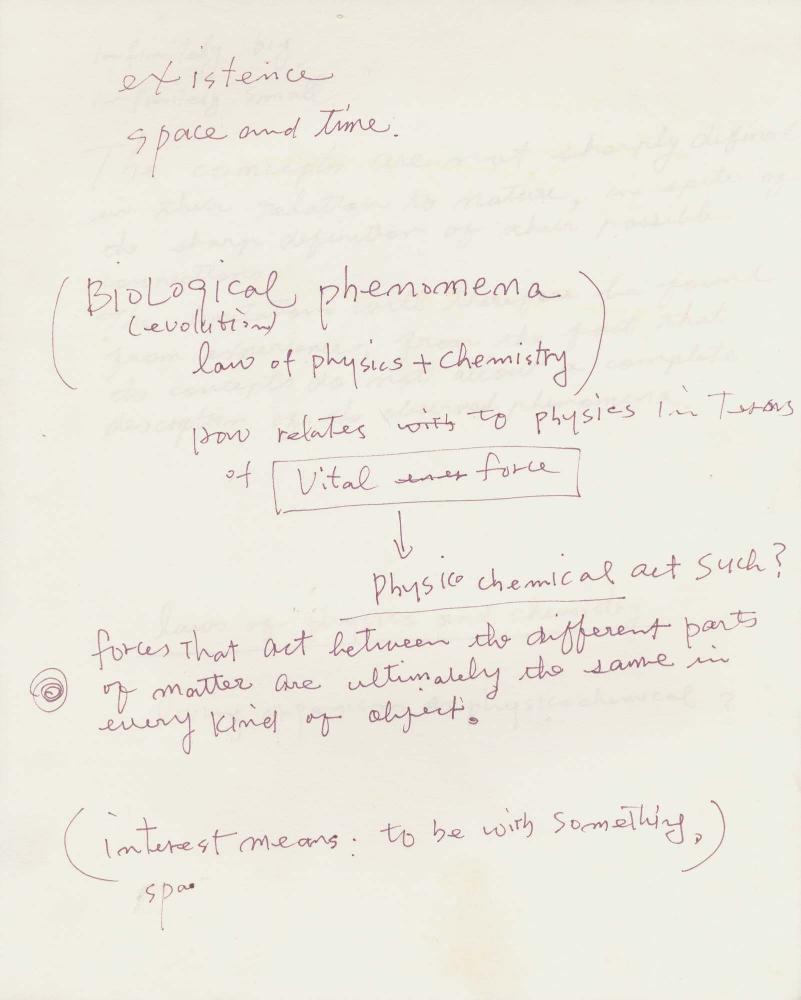 existence
space and time.
(Biological phenomena
(evolution)
law of physics + chemistry)
how relates with to physics in Terms
of Vital force
↓
Physico chemical act such?
forces that act between the different parts
of matter are ultimately the same in
every kind of object.
(interest means: to be with something,)
spa